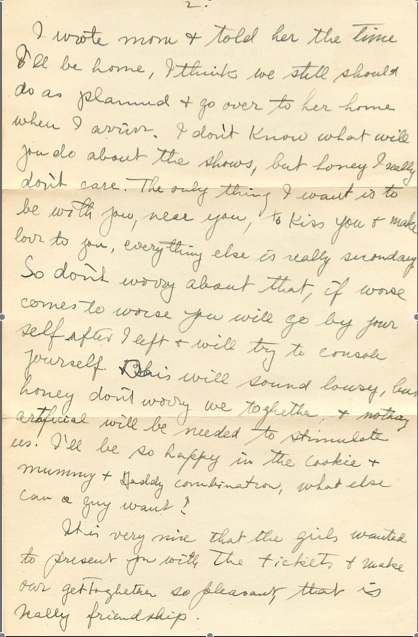 2.
I wrote mom & told her the time
I'll be home, I think we still should
do as planned & go over to her home
when I arrive. I don't know what will
you do about the shows, but honey I really
don't care. The only thing I want is to
be with you, near you, to kiss you & make
love to you, everything else is really secondary
So don't worry about that, if worse
comes to worse you will go by your
self after I left & will try to console
yourself. This will sound lousy, but
honey don't worry we toghether, & nothing
artificial will be needed to stimulate
us. I'll be so happy in the cookie &
mummy & Daddy combination, what else
can a guy want?
It is very nice that the girls wanted
to present you with the tickets & make
our gettoghether so pleasant, that is
really friendship.